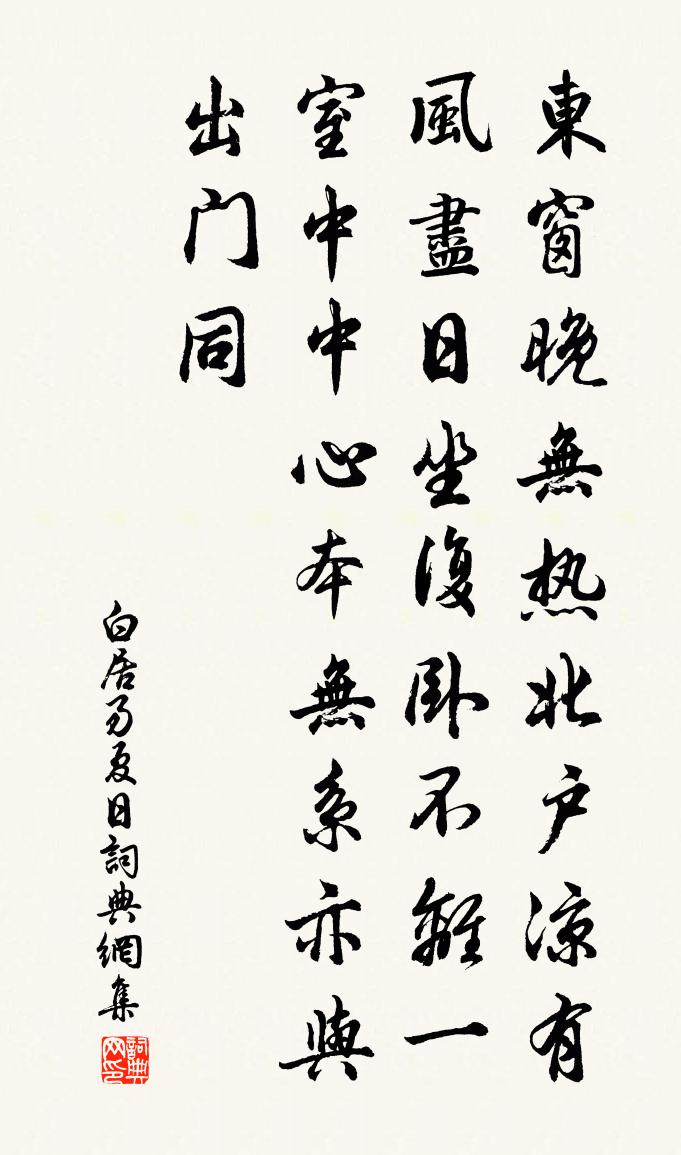 東窗晚無热北戶涼有
風盡日坐復卧不離一
室中中心本無系亦與
出门同
白居易夏日詞典網集
詞典网印